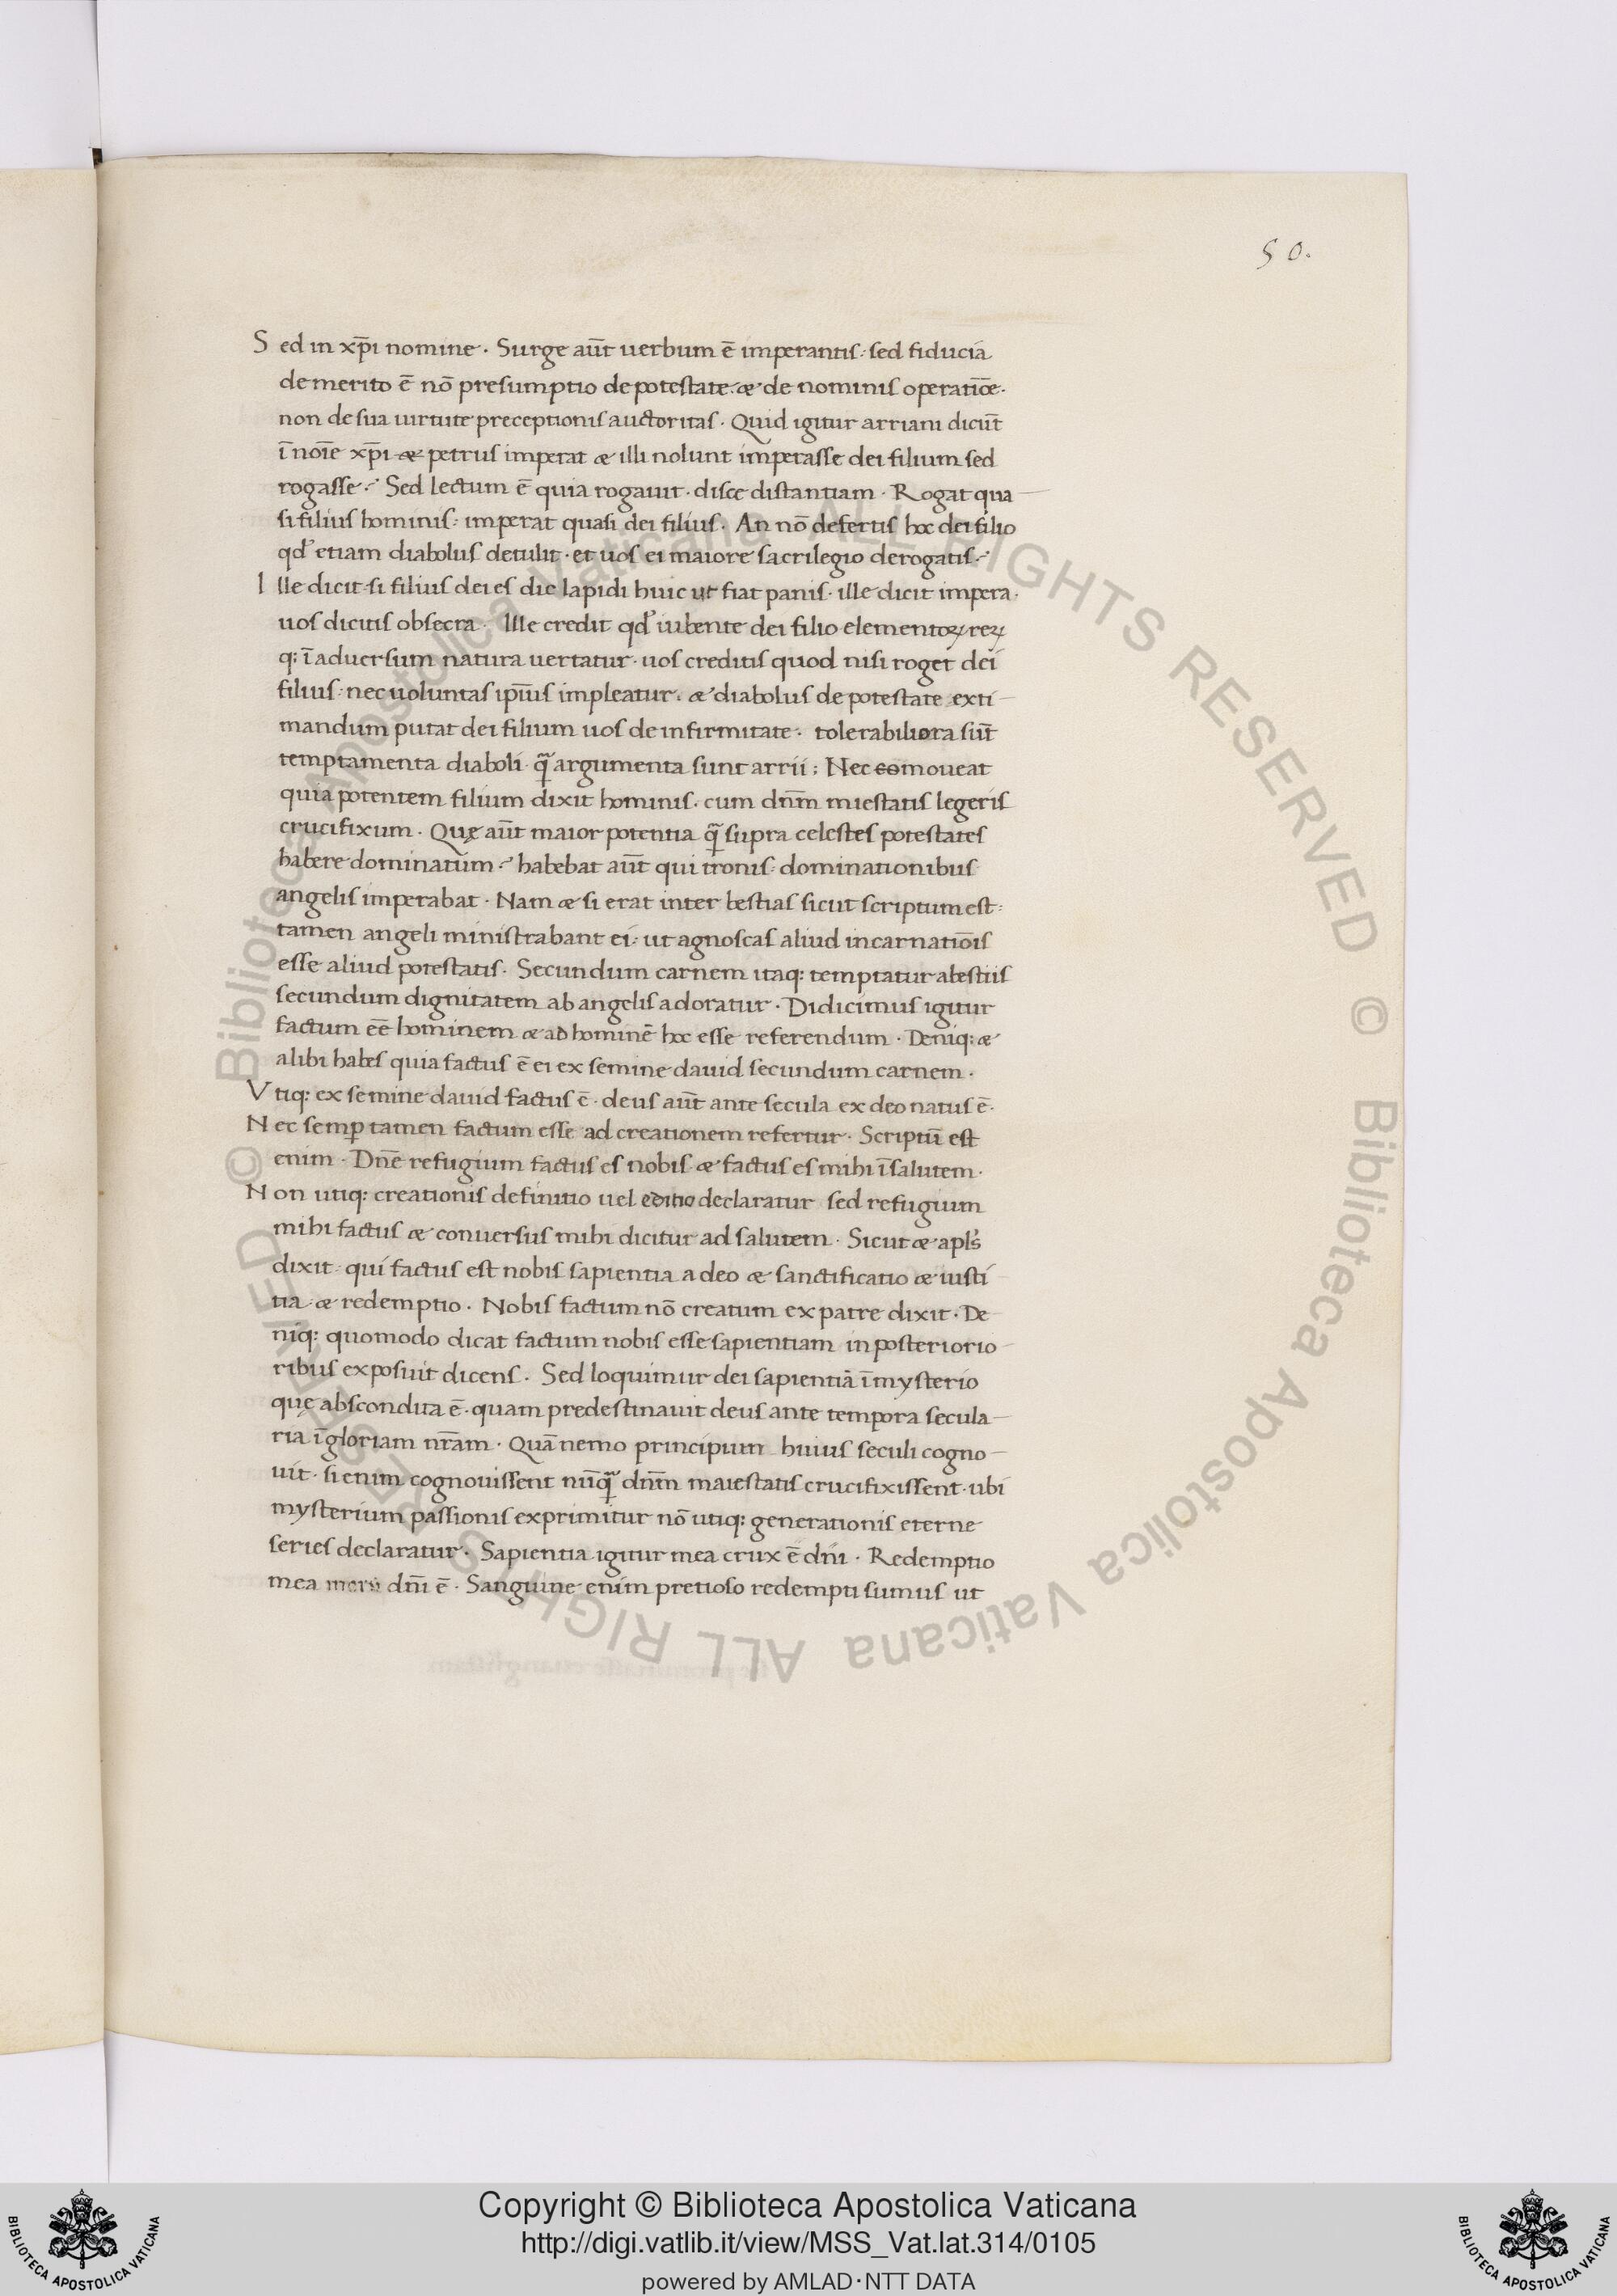 50.
Sed in xp̅i nomine · Surge aut̅ uerbum e̅ imperantis : sed fiducia
de merito e̅ no̅ presumptio de potestate : æ de nominis operatio̅e ·
non de sua uirtute preceptionis auctoritas · Quid igitur arriani dicu̅t
i̅ noi̅e xp̅i æ petrus imperat æ illi nolunt imperasse dei filium sed
rogasse ·´ Sed lectum e̅ quia rogauit · disce distantiam · Rogat qua
si filius hominis : imperat quasi dei filius · An no̅ defertis hoc dei filio
qd' etiam diabolus detulit · et uos ei maiore sacrilegio derogatis ·´
Ille dicit · si filius dei es dic lapidi huic ut fiat panis · ille dicit impera ·
uos dicitis obsecra · Ille credit qd' iubente dei filio elementoꝝ reꝝ
q: i̅ aduersum natura uertatur · uos creditis quod nisi roget dei
filius : nec uoluntas ipi̅us impleatur · æ diabolus de potestate exti
mandum putat dei filium uos de infirmitate · tolerabiliora su̅t
temptamenta diaboli · qᷓ argumenta sunt arrii ; Nec comoueat
quia potentem filium dixit hominis · cum dn̅m miestatis legeris
crucifixum · Quę aut̅ maior potentia qᷓ supra celestes potestates
habere dominatum ·´ habebat aut̅ qui tronis : dominationibus
angelis imperabat · Nam æ si erat inter bestias sicut scriptum est :
tamen angeli ministrabant ei : ut agnoscas aliud incarnatio̅is
esse aliud potestatis · Secundum carnem itaq: temptatur abestiis
secundum dignitatem ab angelis adoratur · Didicimus igitur
factum ee̅ hominem æ ad homine̅ hoc esse referendum · Deniq: æ
alibi habes quia factus e̅ ei ex semine dauid secundum carnem ·
Vtiq: ex semine dauid factus e̅ · deus aut̅ ante secula ex deo natus e̅ ·
Nec semꝑ tamen factum esse ad creationem refertur · Scriptu̅ est
enim · Dn̅e refugium factus es nobis · æ factus es mihi i̅ salutem ·
Non utiq: creationis definitio uel editio declaratur sed refugium
mihi factus æ conuersus mihi dicitur ad salutem · Sicut æ apl's
dixit : qui factus est nobis sapientia a deo æ sanctificatio æ iusti
tia · æ redemptio · Nobis factum no̅ creatum ex patre dixit · De
niq: quomodo dicat factum nobis esse sapientiam in posteriorio
ribus exposuit dicens · Sed loquimur dei sapientia̅ i̅ mysterio
quę abscondita e̅ · quam predestinauit deus ante tempora secula
ria i̅ gloriam nr̅am · Qua̅ nemo principum huius seculi cogno
uit · si enim cognouissent nu̅qᷓ dn̅m maiestatis crucifixissent · ubi
mysterium passionis exprimitur no̅ utiq: generationis eterne
series declaratur · Sapientia igitur mea crux e̅ dn̅i · Redemptio
mea dn̅i e̅ · Sanguine enim pretioso redempti sumus ut
© Biblioteca Apostolica Vaticana ALL RIGHTS RESERVED © Biblioteca Apostolica Vaticana ALL RIGHTS RESERVED
Copyright © Biblioteca Apostolica Vaticana
http://digi.vatlib.it/view/MSS_Vat.lat.314/0105
powered by AMLAD·NTT DATA
BIBLIOTECA APOSTOLICA VATICANA
BIBLIOTECA APOSTOLICA VATICANA